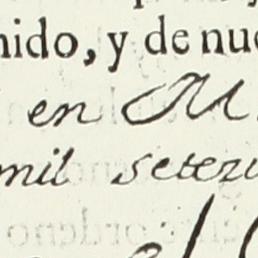 nido, y de nue
en M
mil setezi